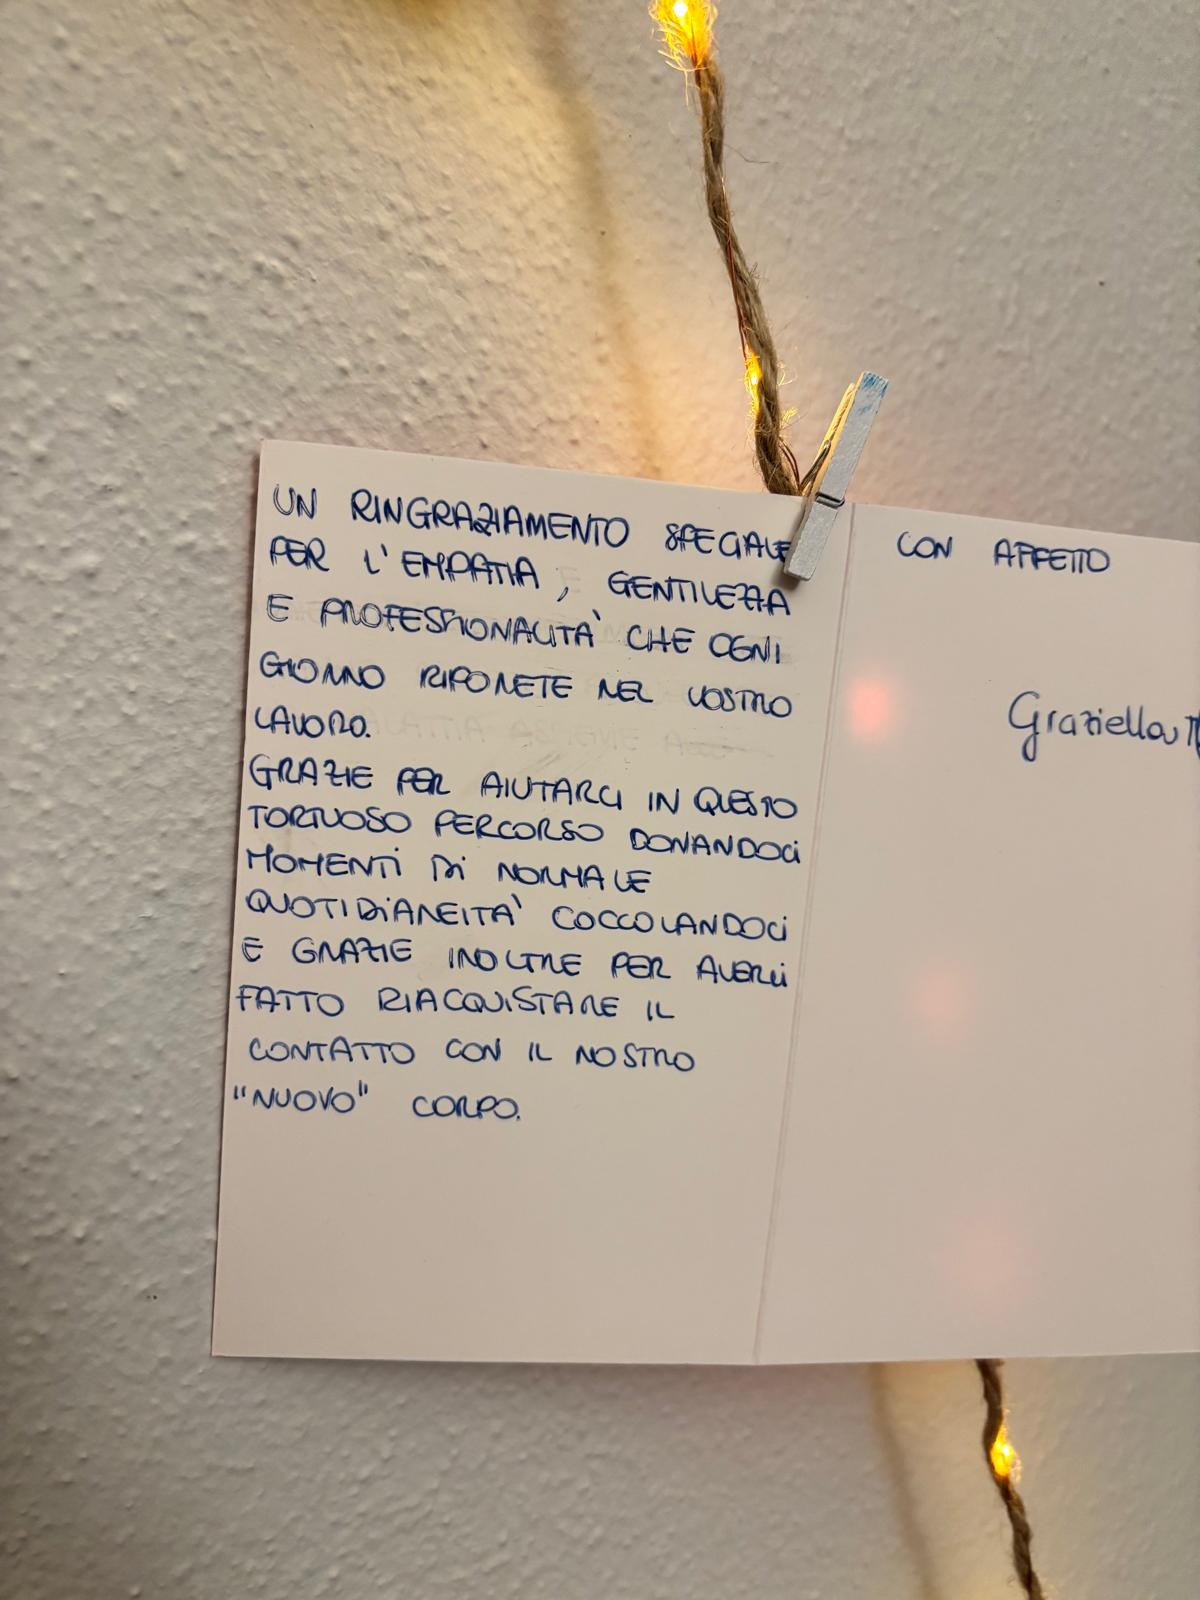 UN RINGRAZIAMENTO SPECIALE
PER L'EMPATIA, GENTILEZZA
E PROFESSIONALITÀ CHE OGNI
GIORNO RIPONETE NEL VOSTRO
LAVORO.
GRAZIE PER AIUTARCI IN QUESTO
TORTUOSO PERCORSO DONANDOCi
MOMENTi Di NORMALE
QUOTIDiANEITA' COCCOLANDOCi
E GRAZIE INOLTRE PER AVERCi
FATTO RIACQUiSTARE IL
CONTATTO CON IL NOSTRO
"NUOVO" CORPO.
CON AFFETTO
Graziella